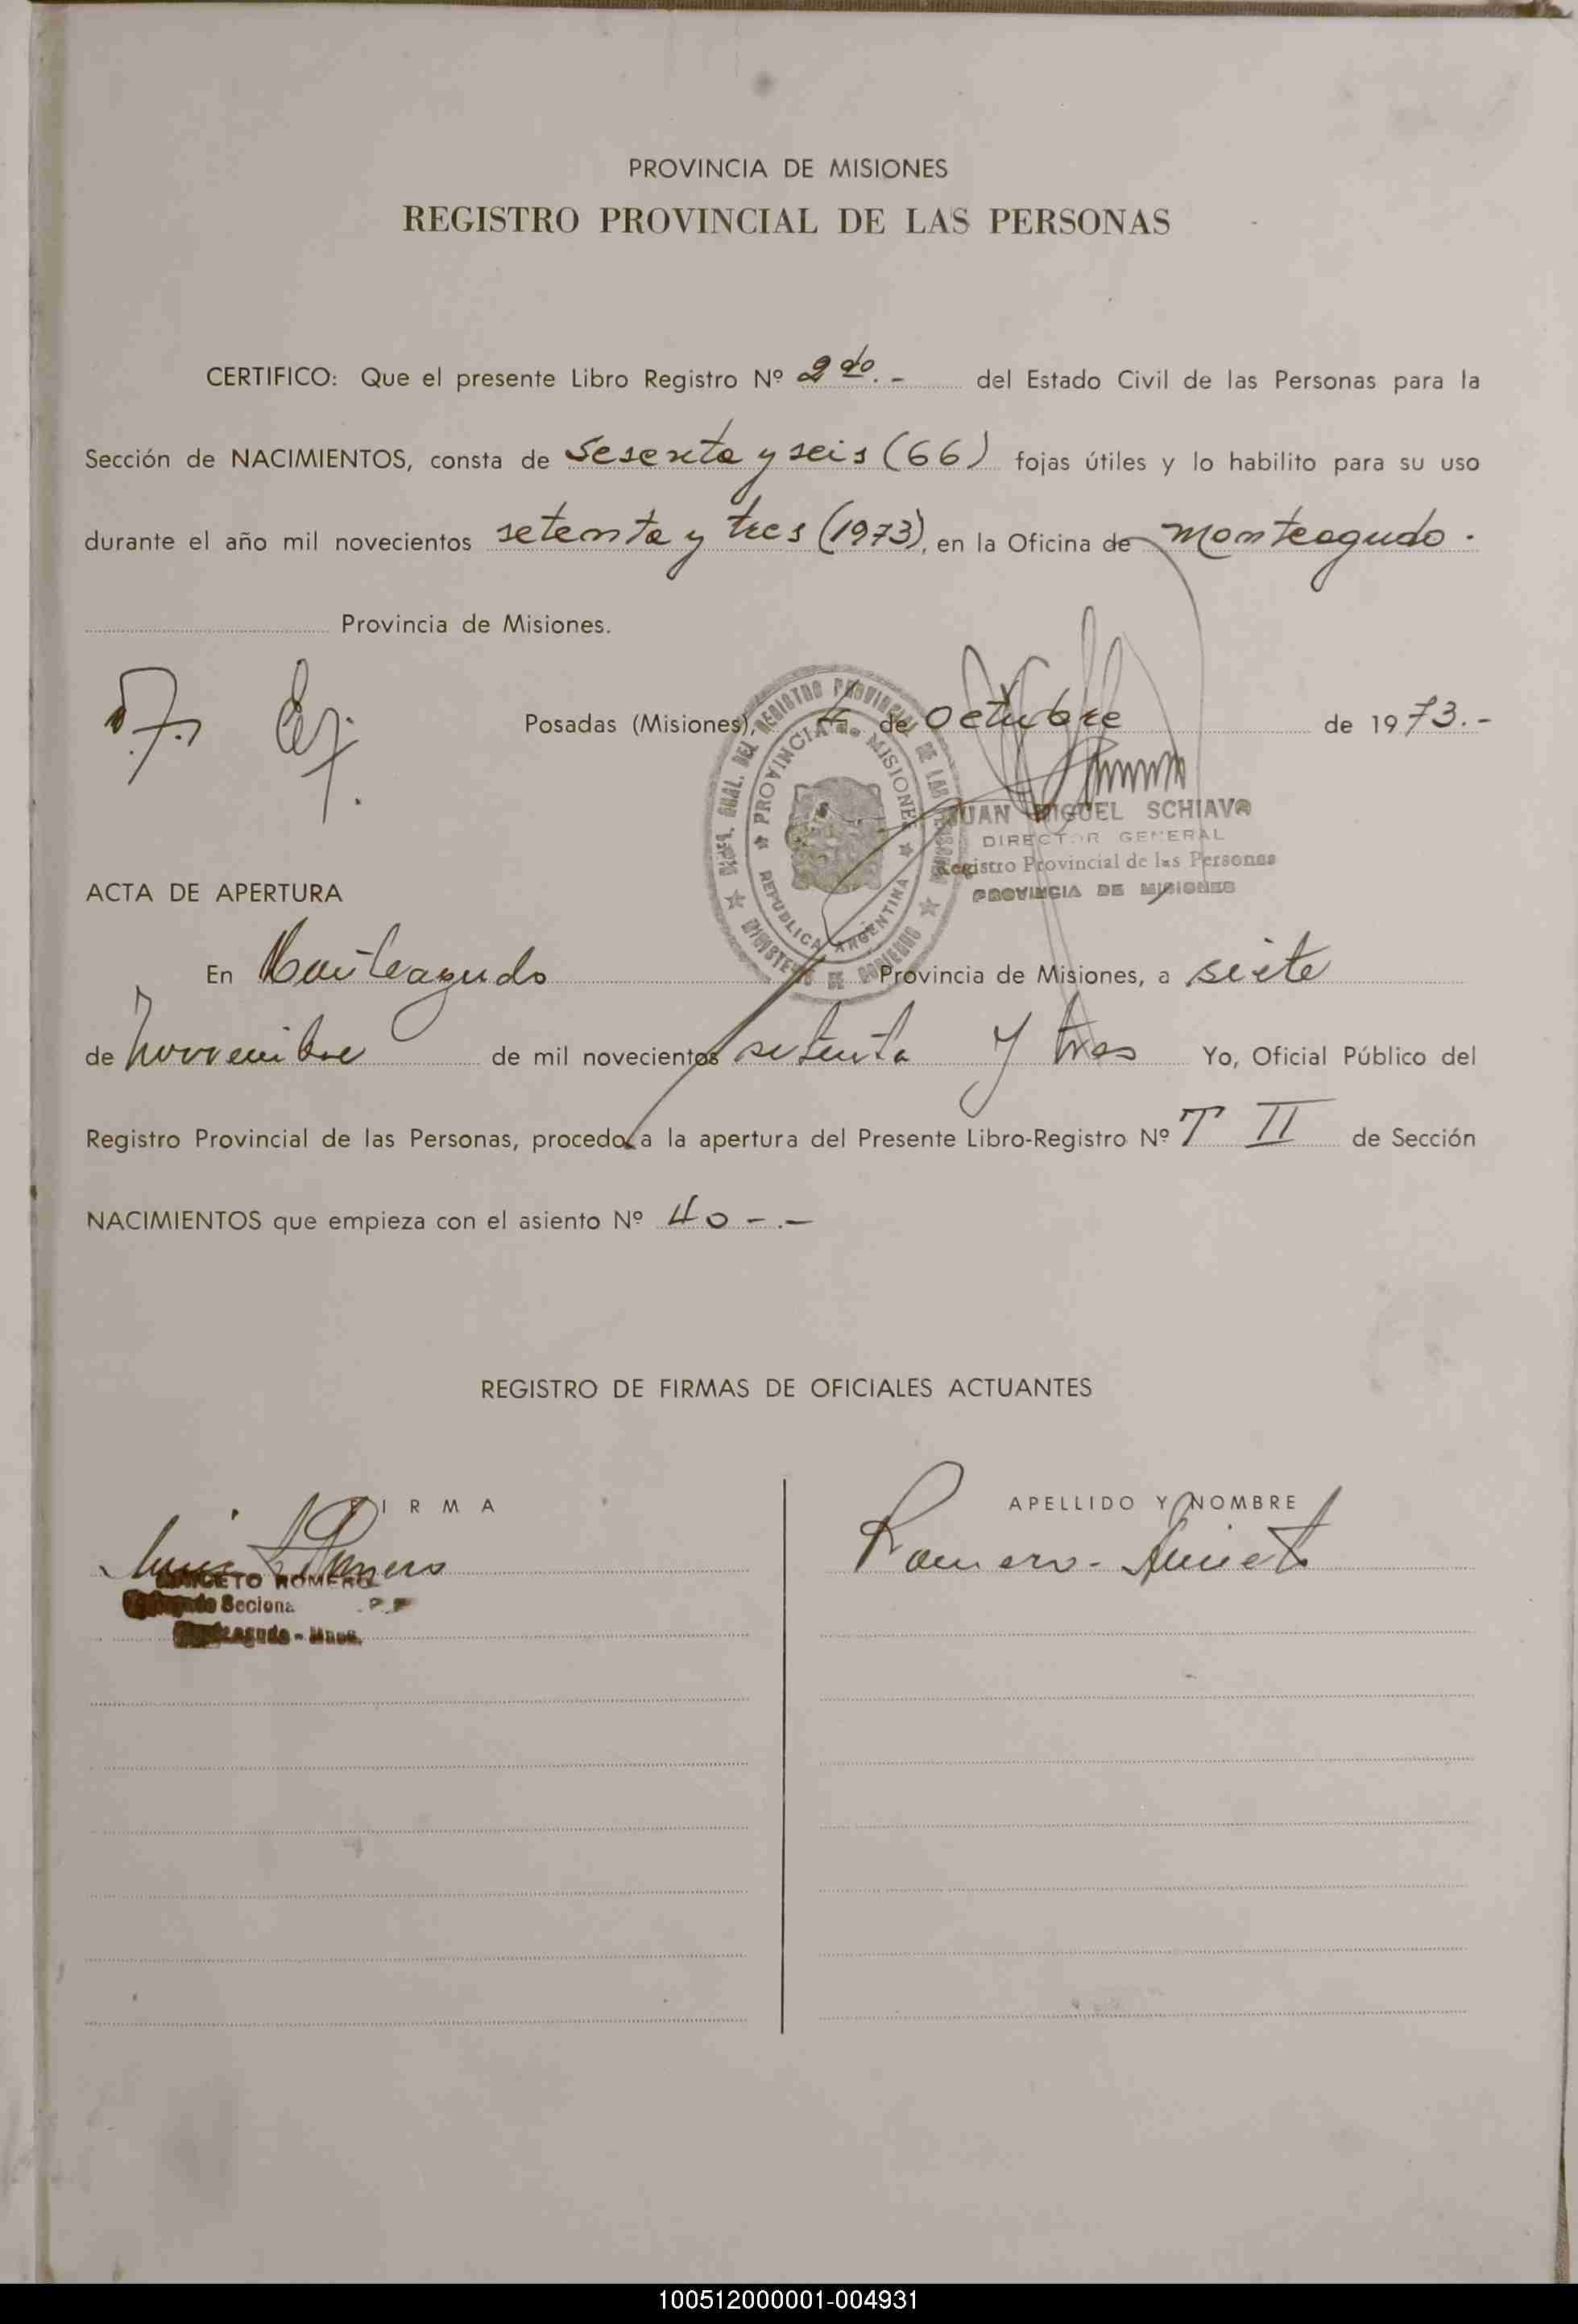 PROVINCIA DE MISIONES
REGISTRO PROVINCIAL DE LAS PERSONAS
CERTIFICO: Que el presente Libro Registro Nº 2do.- del Estado Civil de las Personas para la
Sección de NACIMIENTOS, consta de sesenta y seis (66) fojas útiles y lo habilito para su uso
durante el año mil novecientos setenta y tres (1973), en la Oficina de Monteagudo.
Provincia de Misiones.
Posadas (Misiones), 4 de octubre de 1973.-
DIRECCION GRAL. DEL REGISTRO PROVINCIAL DE LAS PERSONAS
MINISTERIO DE GOBIERNO
PROVINCIA de MISIONES
REPUBLICA ARGENTINA
JUAN MIGUEL SCHIAVO
DIRECTOR GENERAL
Registro Provincial de las Personas
PROVINCIA DE MISIONES
ACTA DE APERTURA
En Monteagudo Provincia de Misiones, a siete
de noviembre de mil novecientos setenta y tres Yo, Oficial Público del
Registro Provincial de las Personas, procedo a la apertura del Presente Libro-Registro Nº T II de Sección
NACIMIENTOS que empieza con el asiento Nº 40-.-
REGISTRO DE FIRMAS DE OFICIALES ACTUANTES
FIRMA
APELLIDO Y NOMBRE
Romero
Romero-
ROMERO
100512000001-004931